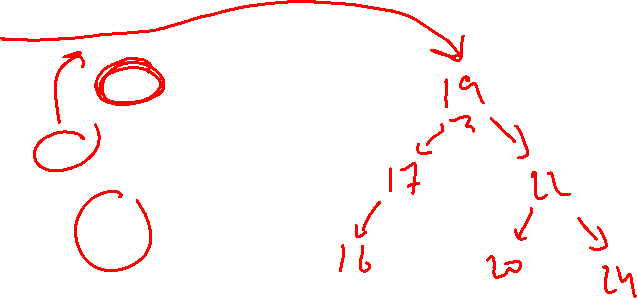 19
17 22
16 20 24